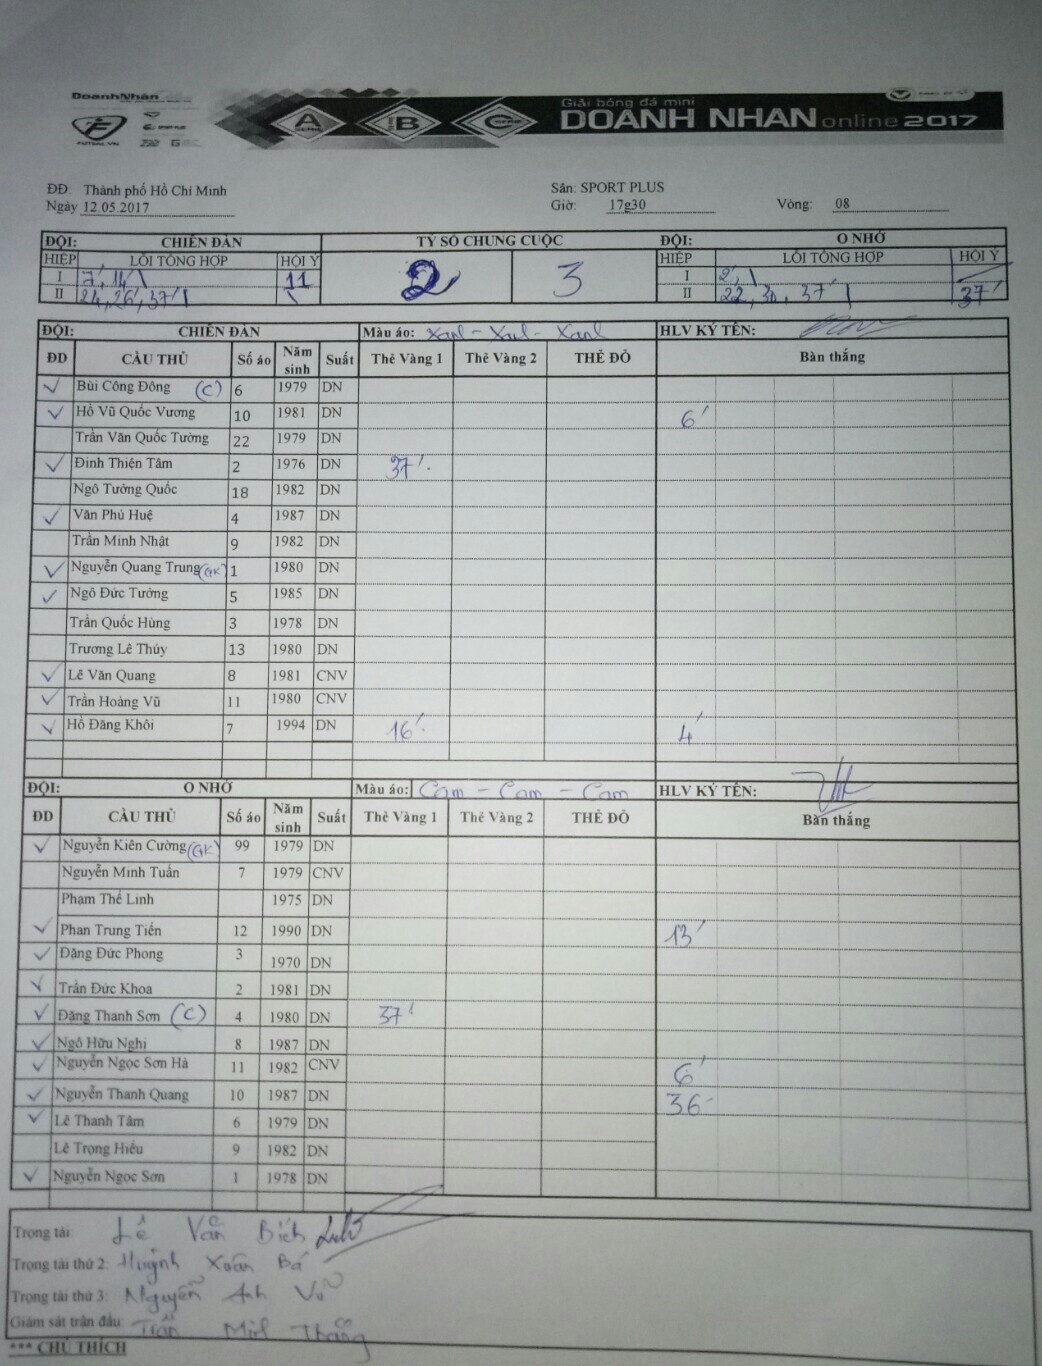 DoanhNhân
FUTSAL.VN
SPORT PLUS
A B C
Giải bóng đá mini
DOANH NHAN online 2017
ĐĐ: Thành phố Hồ Chí Minh Sân: SPORT PLUS
Ngày 12.05.2017 Giờ: 17g30 Vòng: 08
ĐỘI: CHIẾN ĐÀN TỶ SỐ CHUNG CUỘC ĐỘI: O NHỚ
HIỆP LỖI TỔNG HỢP HỘI Ý 2 3 HIỆP LỖI TỔNG HỢP HỘI Ý
I 7', 14' \ 11 I 2', \
II 24, 26', 37' \ II 22, 30, 37' 37'
ĐỘI: CHIẾN ĐÀN Màu áo: Xanh - Xanh - Xanh HLV KÝ TÊN:
ĐD CẦU THỦ Số áo Năm sinh Suất Thẻ Vàng 1 Thẻ Vàng 2 THẺ ĐỎ Bàn thắng
✓ Bùi Công Đông (C) 6 1979 DN
✓ Hồ Vũ Quốc Vương 10 1981 DN 6'
Trần Văn Quốc Tường 22 1979 DN
✓ Đinh Thiện Tâm 2 1976 DN 37'
Ngô Tưởng Quốc 18 1982 DN
✓ Văn Phú Huệ 4 1987 DN
Trần Minh Nhật 9 1982 DN
✓ Nguyễn Quang Trung (GK) 1 1980 DN
✓ Ngô Đức Tưởng 5 1985 DN
Trần Quốc Hùng 3 1978 DN
Trương Lê Thúy 13 1980 DN
✓ Lê Văn Quang 8 1981 CNV
✓ Trần Hoàng Vũ 11 1980 CNV
✓ Hồ Đăng Khôi 7 1994 DN 16' 4'
ĐỘI: O NHỚ Màu áo: Cam - Cam - Cam HLV KÝ TÊN:
ĐD CẦU THỦ Số áo Năm sinh Suất Thẻ Vàng 1 Thẻ Vàng 2 THẺ ĐỎ Bàn thắng
✓ Nguyễn Kiên Cường (GK) 99 1979 DN
Nguyễn Minh Tuấn 7 1979 CNV
Phạm Thế Linh 1975 DN
✓ Phan Trung Tiến 12 1990 DN 13'
✓ Đặng Đức Phong 3 1970 DN
✓ Trần Đức Khoa 2 1981 DN
✓ Đặng Thanh Sơn (C) 4 1980 DN 37'
✓ Ngô Hữu Nghị 8 1987 DN
✓ Nguyễn Ngọc Sơn Hà 11 1982 CNV 6'
✓ Nguyễn Thanh Quang 10 1987 DN 36'
✓ Lê Thanh Tâm 6 1979 DN
Lê Trọng Hiếu 9 1982 DN
✓ Nguyễn Ngọc Sơn 1 1978 DN
Trọng tài Lê Văn Bích
Trọng tài thứ 2: Huỳnh Xoân Bá
Trọng tài thứ 3: Nguyễn Anh Vũ
Giám sát trận đấu: Trần Minh Thắng
*** CHÚ THÍCH